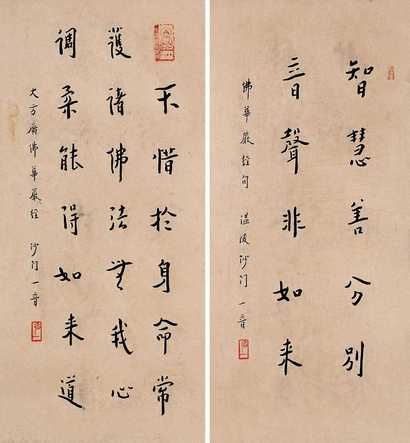 智慧善分別
音聲非如来
佛華嚴經句 温陵沙门一音
不惜於身命常
護諸佛法無我心
調柔能得如来道
大方廣佛華嚴經 沙门一音